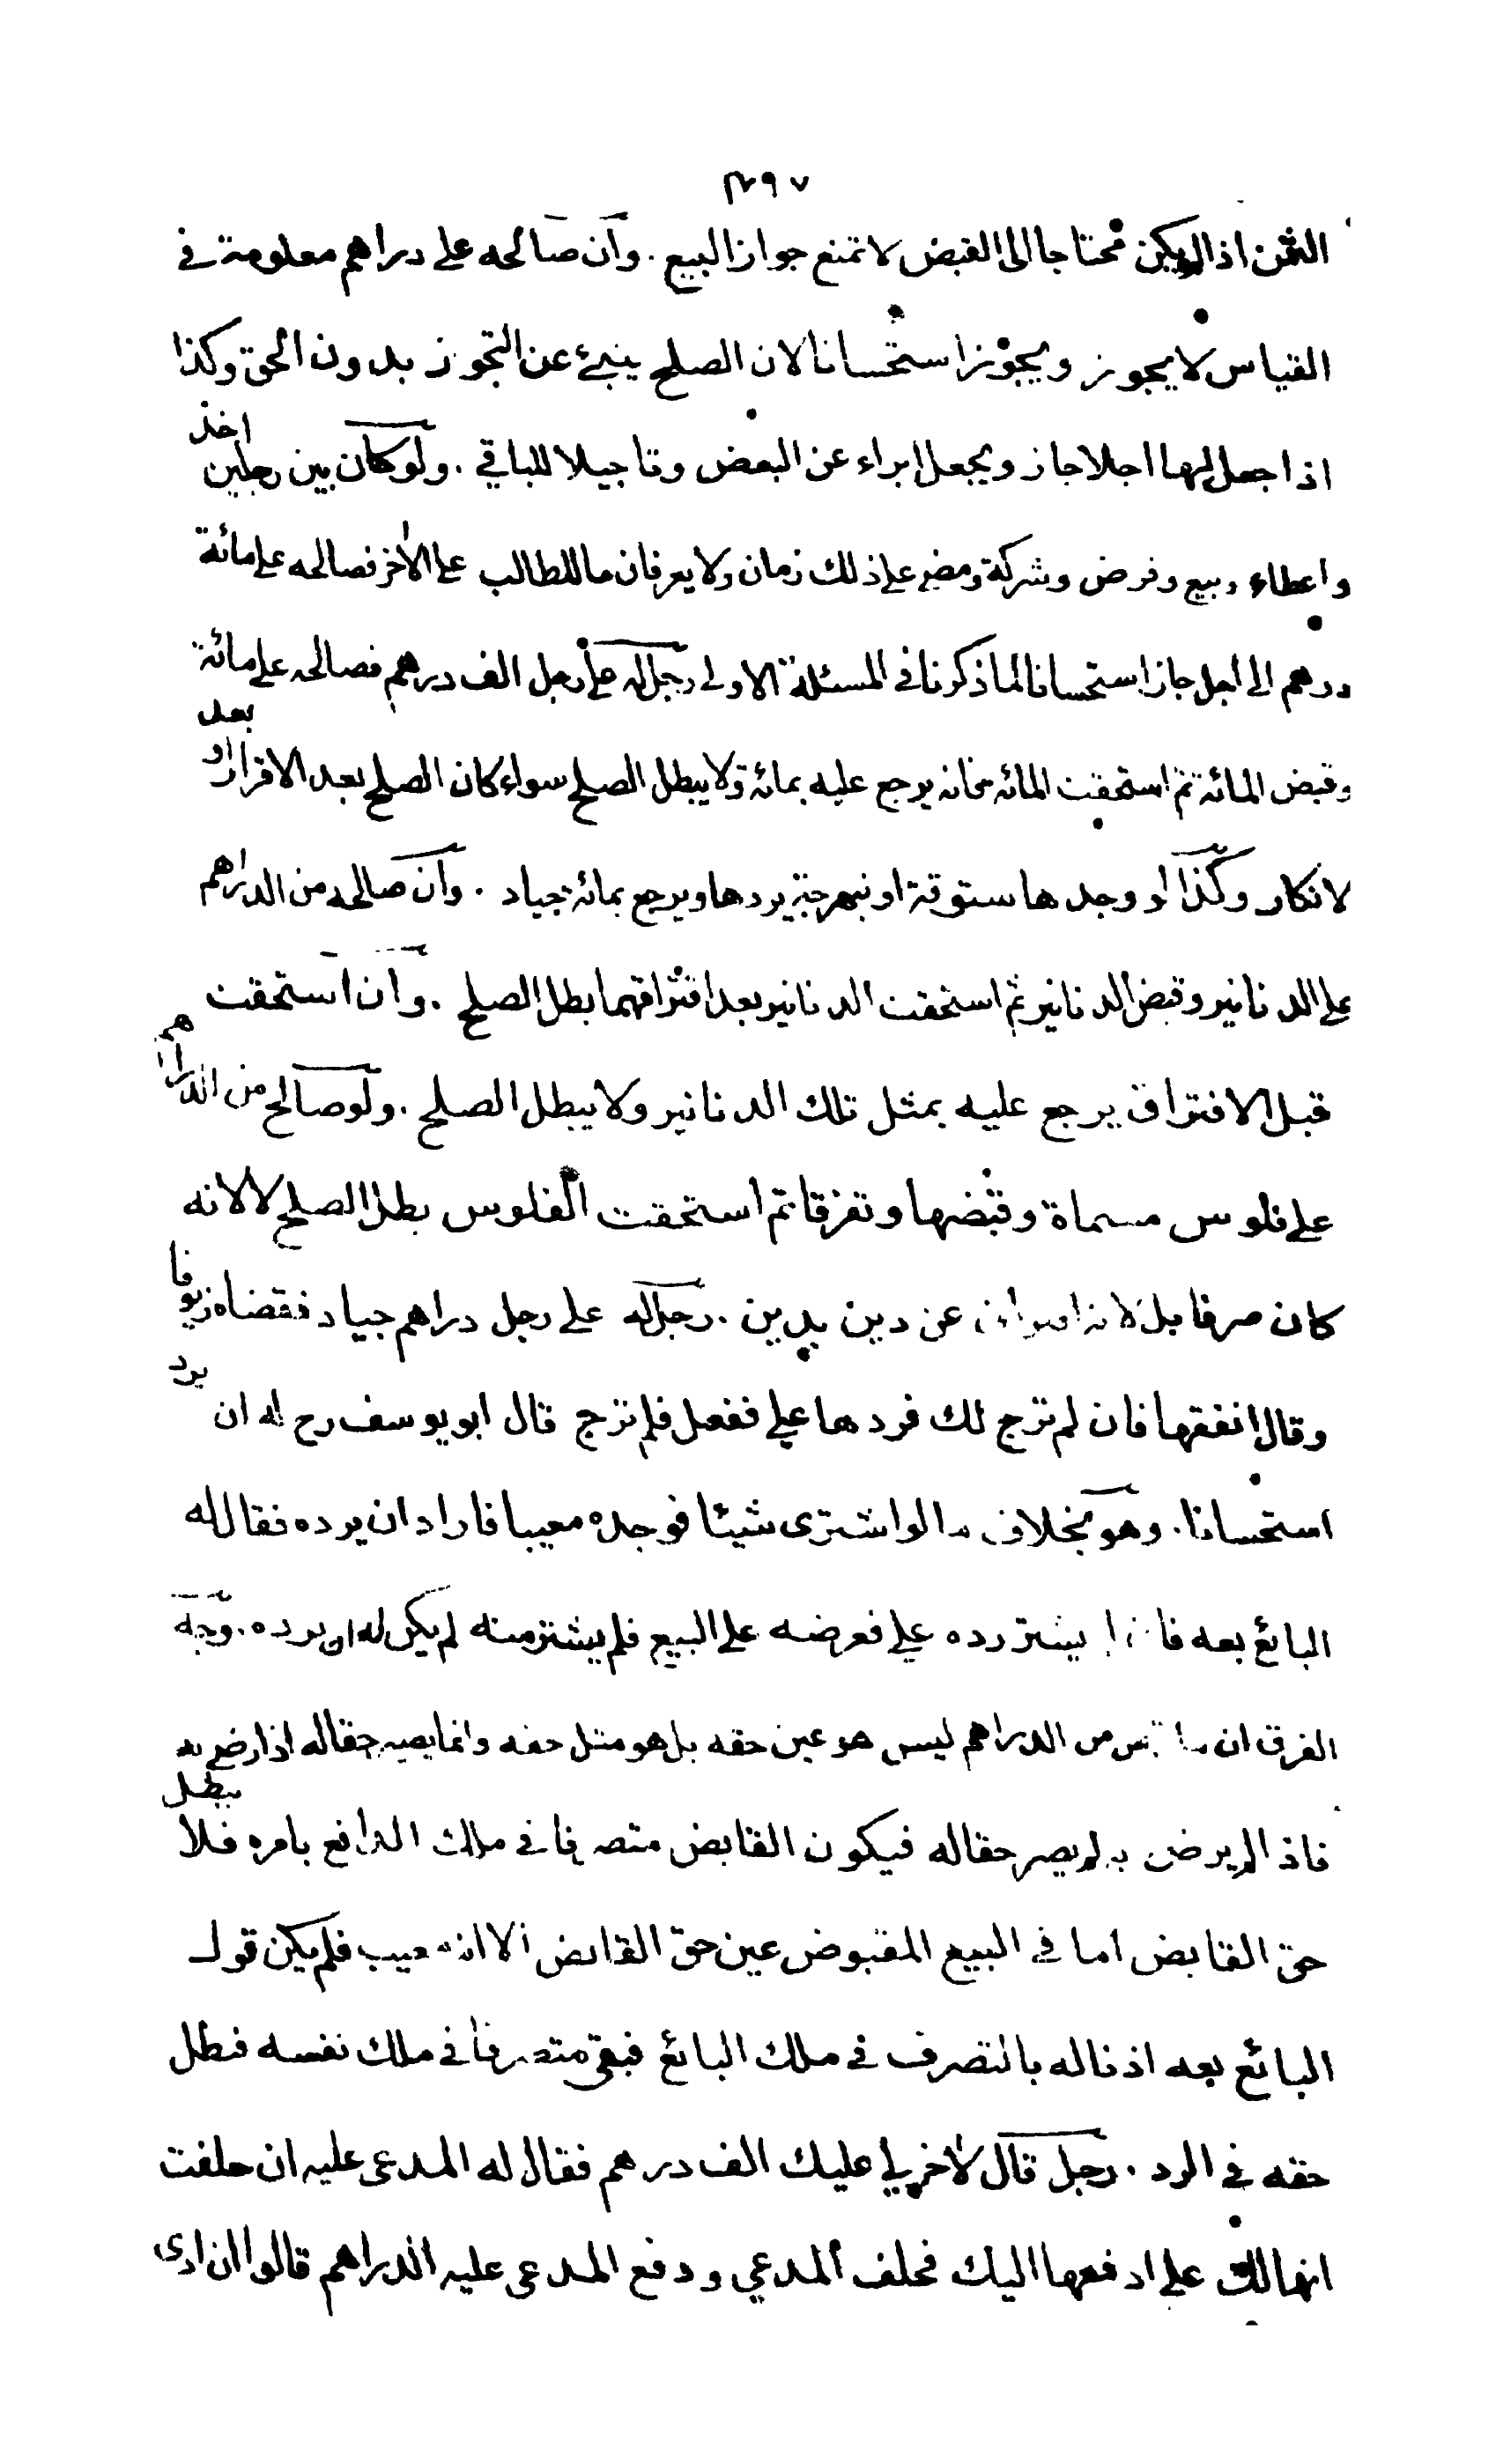 ٤٩٧
الثمن اذا لم يكن محتاجا الى القبض لا تمنع جواز البيع . وان صالحه على دراهم معلومة في
القياس لا يجوز ويجوز استحسانا لان الصلح ينبئ عن التجوز بدون الحق وكذا
اذا جعل لها اجلا جاز ويجعل ابراء عن البعض وتاجيلا للباقي . ولو كان بين رجلين اخذ
واعطاء وبيع وقرض وشركة ومضى على ذلك زمان ولا يعرفان ما للطالب على الاخر فصالحه على مائة
درهم الى اجل جاز استحسانا لما ذكرنا في المسئلة الاولى رجل له على رجل الف درهم فصالحه على مائة
وقبض المائة ثم استحقت المائة فانه يرجع عليه بمائة ولا يبطل الصلح سواء كان الصلح بعد الاقرار او بعد
لانكار وكذا لو وجدها ستوقة او نبهرجة يردها ويرجع بمائة جياد . وان صالحه من الدراهم
على الدنانير وقبض الدنانير ثم استحقت الدنانير بعد افتراقهما بطل الصلح . وان استحقت
قبل الافتراق يرجع عليه بمثل تلك الدنانير ولا يبطل الصلح . ولو صالح من الدراهم
على فلوس مسماة وقبضها وتفرقا ثم استحقت الفلوس بطل الصلح لا لانه
كان صرفا بل لانه افتراق عن دين بدين . رجل له على رجل دراهم جياد فقضاه زيوفا
وقال انفقها فان لم ترج لك فردها علي ففعل فلم ترج قال ابو يوسف رح له ان يرد
استحسانا . وهو بخلاف ما لو اشترى شيئا فوجده معيبا فاراد ان يرده فقال له
البائع بعه فان لم يشتر رده علي فعرضه على البيع فلم يشتر منه لم يكن له ان يرده . وجه
الفرق ان ما قبض من الدراهم ليس هو عين حقه بل هو مثل حقه وانما يصير حقا له اذا رضي به
فاذا لم يرض به لم يصر حقا له فيكون القابض متصرفا في ملك الدافع بامره فلا يبطل
حق القابض اما في البيع المقبوض عين حق القابض الا انه معيب فلم يكن قول
البائع بعه اذنا له بالتصرف في ملك البائع فبقي متصرفا في ملك نفسه فبطل
حقه في الرد . رجل قال لاخر لي عليك الف درهم فقال له المدعى عليه ان حلفت
انها لك علي ادفعها اليك فحلف المدعي ودفع المدعى عليه الدراهم قالوا ان ادى